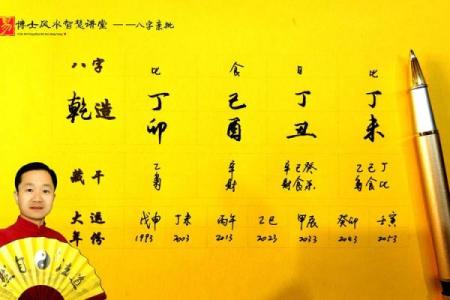 易 博士风水智慧讲堂 ——八字亲批
八字 比 食 日 比
乾造 丁 己 丁 丁
卯 酉 丑 未
藏干 乙 辛 辛己癸 乙己丁
枭 财 财食杀 枭食比
大运 戊申 丁未 丙午 乙巳 甲辰 癸卯 壬寅
年份 1993 2003 2013 2023 2033 2043 2053